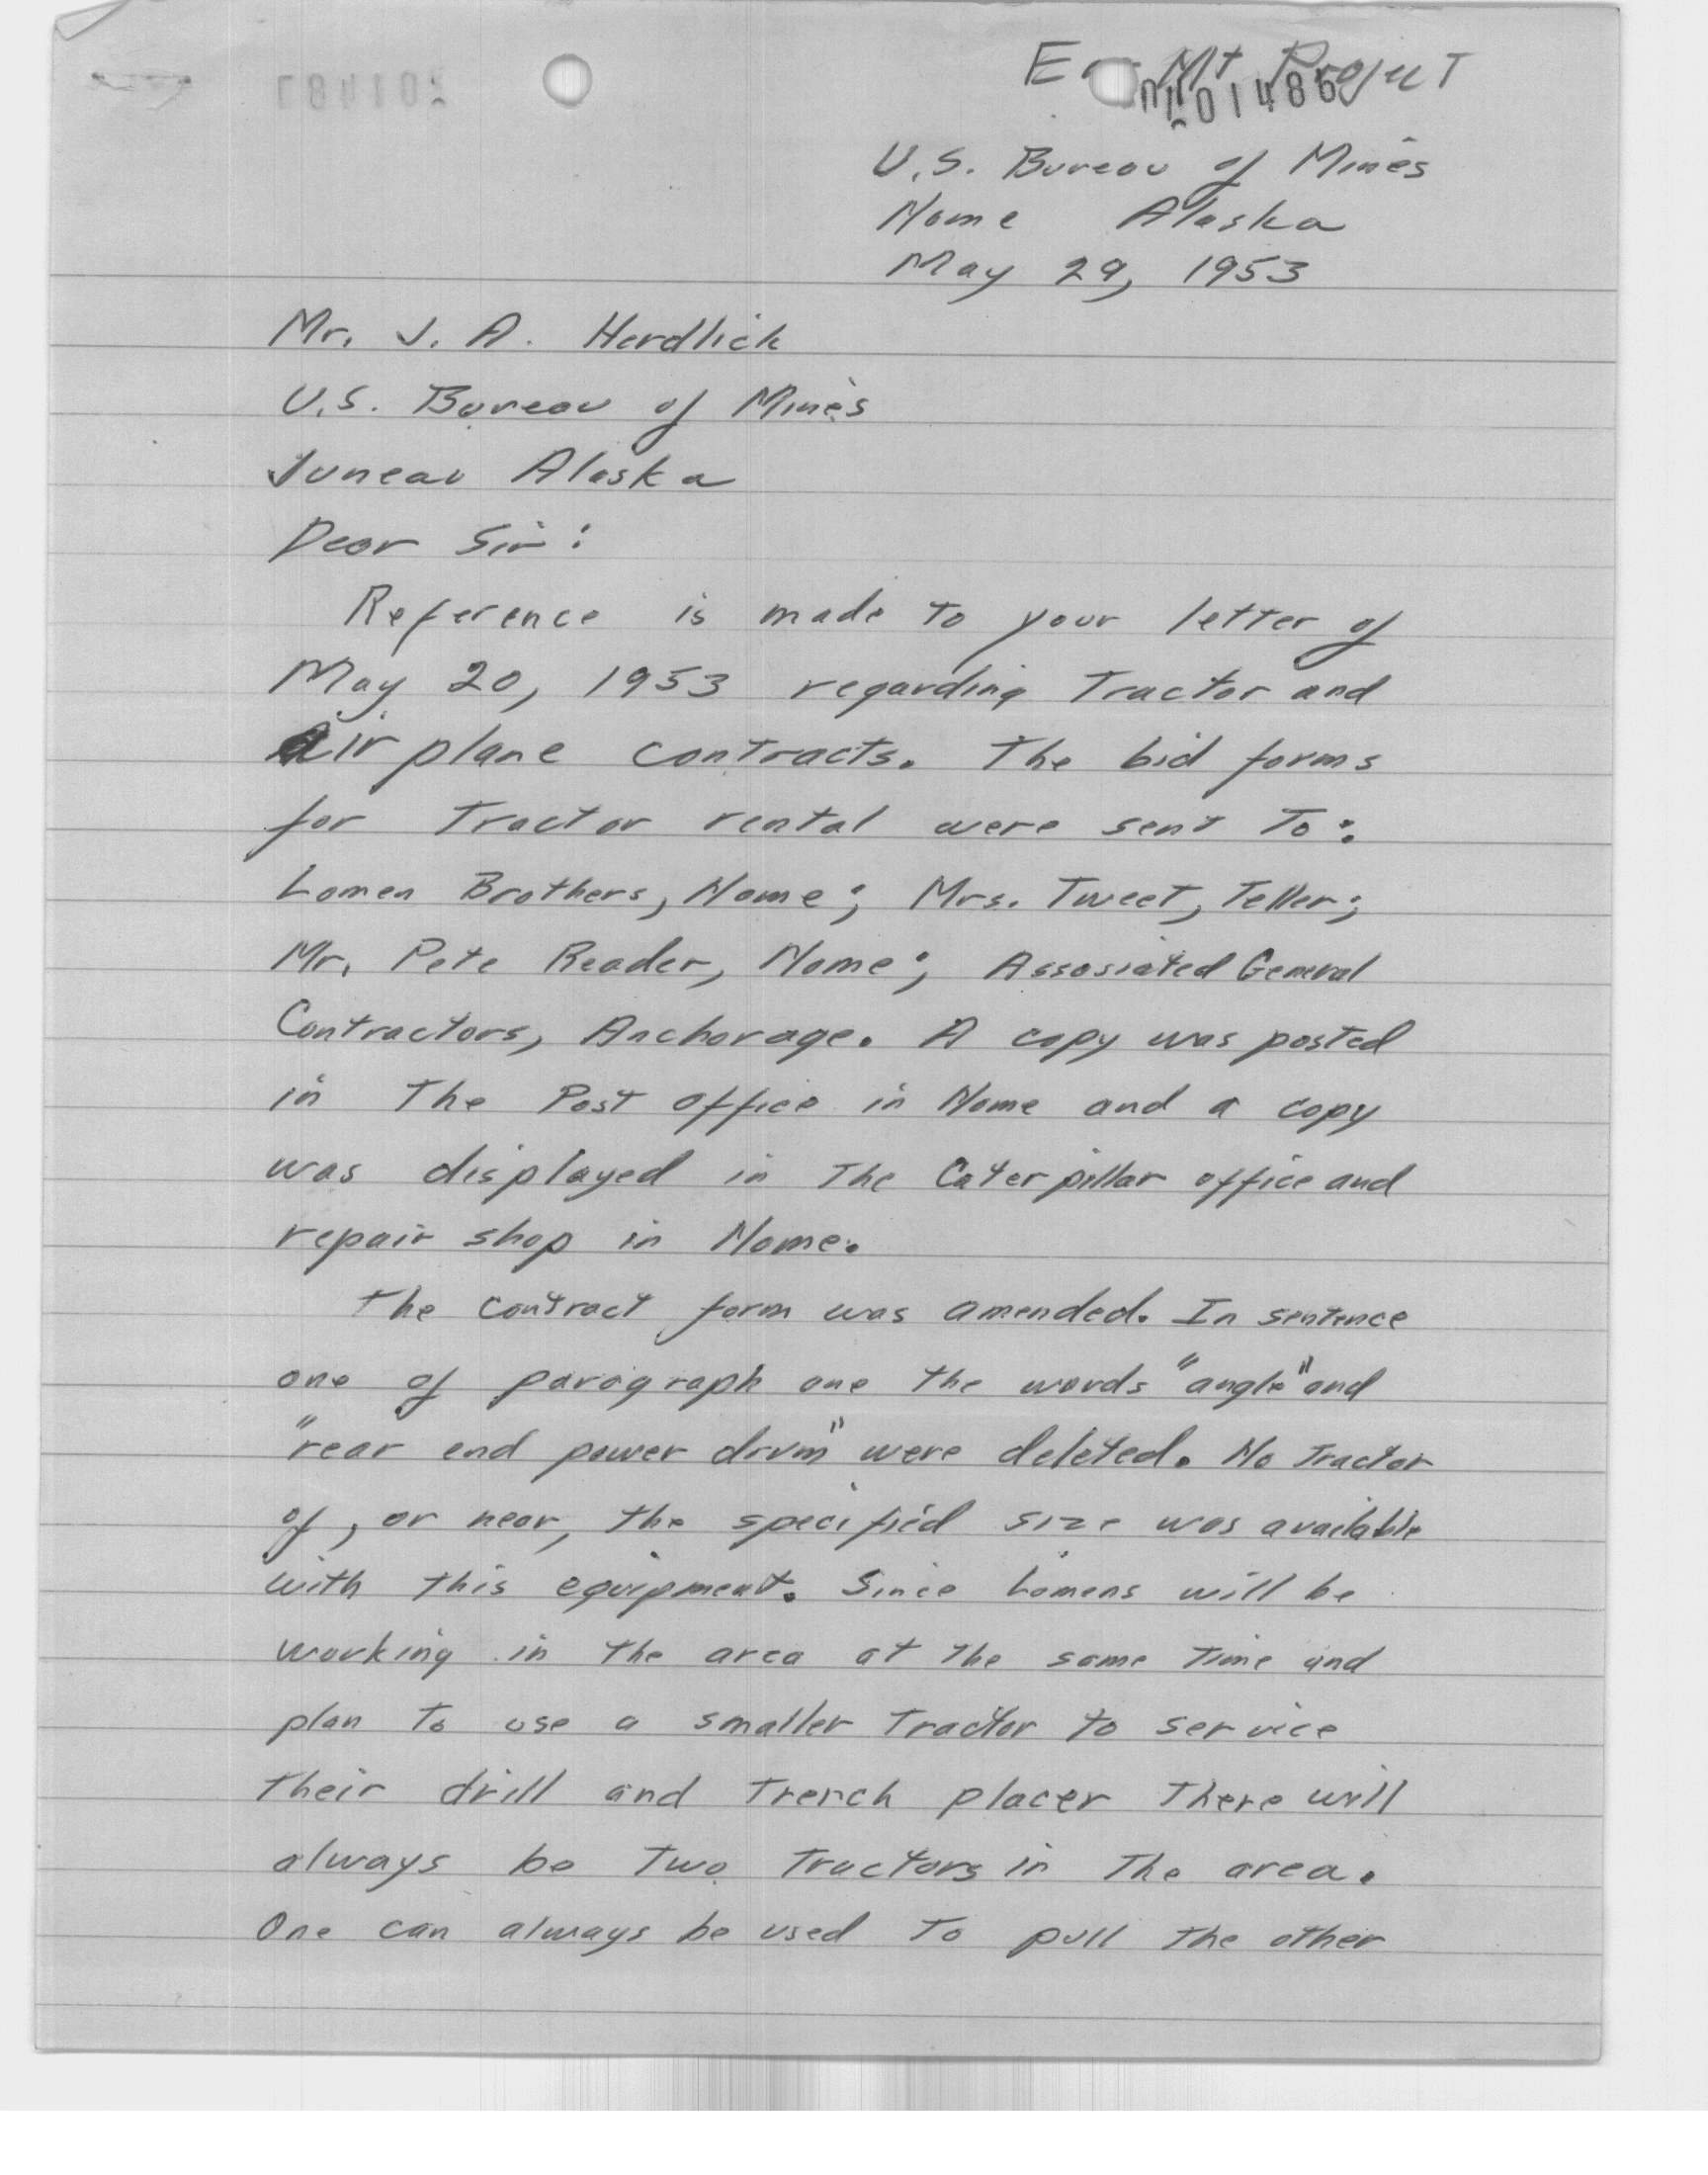 Mt Project
201486
201487
U.S. Bureau of Mines
Nome Alaska
May 29, 1953
Mr. J. A. Herdlick
U.S. Bureau of Mines
Juneau Alaska
Dear Sir:
Reference is made to your letter of
May 20, 1953 regarding Tractor and
Airplane contracts. The bid forms
for Tractor rental were sent To:
Lomen Brothers, Nome; Mrs. Tweet, Teller;
Mr. Pete Reader, Nome; Assosiated General
Contractors, Anchorage. A copy was posted
in The Post office in Nome and a copy
was displayed in The Caterpillar office and
repair shop in Nome.
The contract form was amended. In sentence
one of paragraph one the words "angle" and
"rear end power drum" were deleted. No Tractor
of, or near, the specified size was available
with this equipment. Since Lomens will be
working in the area at the same Time and
plan To use a smaller Tractor to service
their drill and Trench placer There will
always be Two Tractors in The area.
One can always be used To pull the other